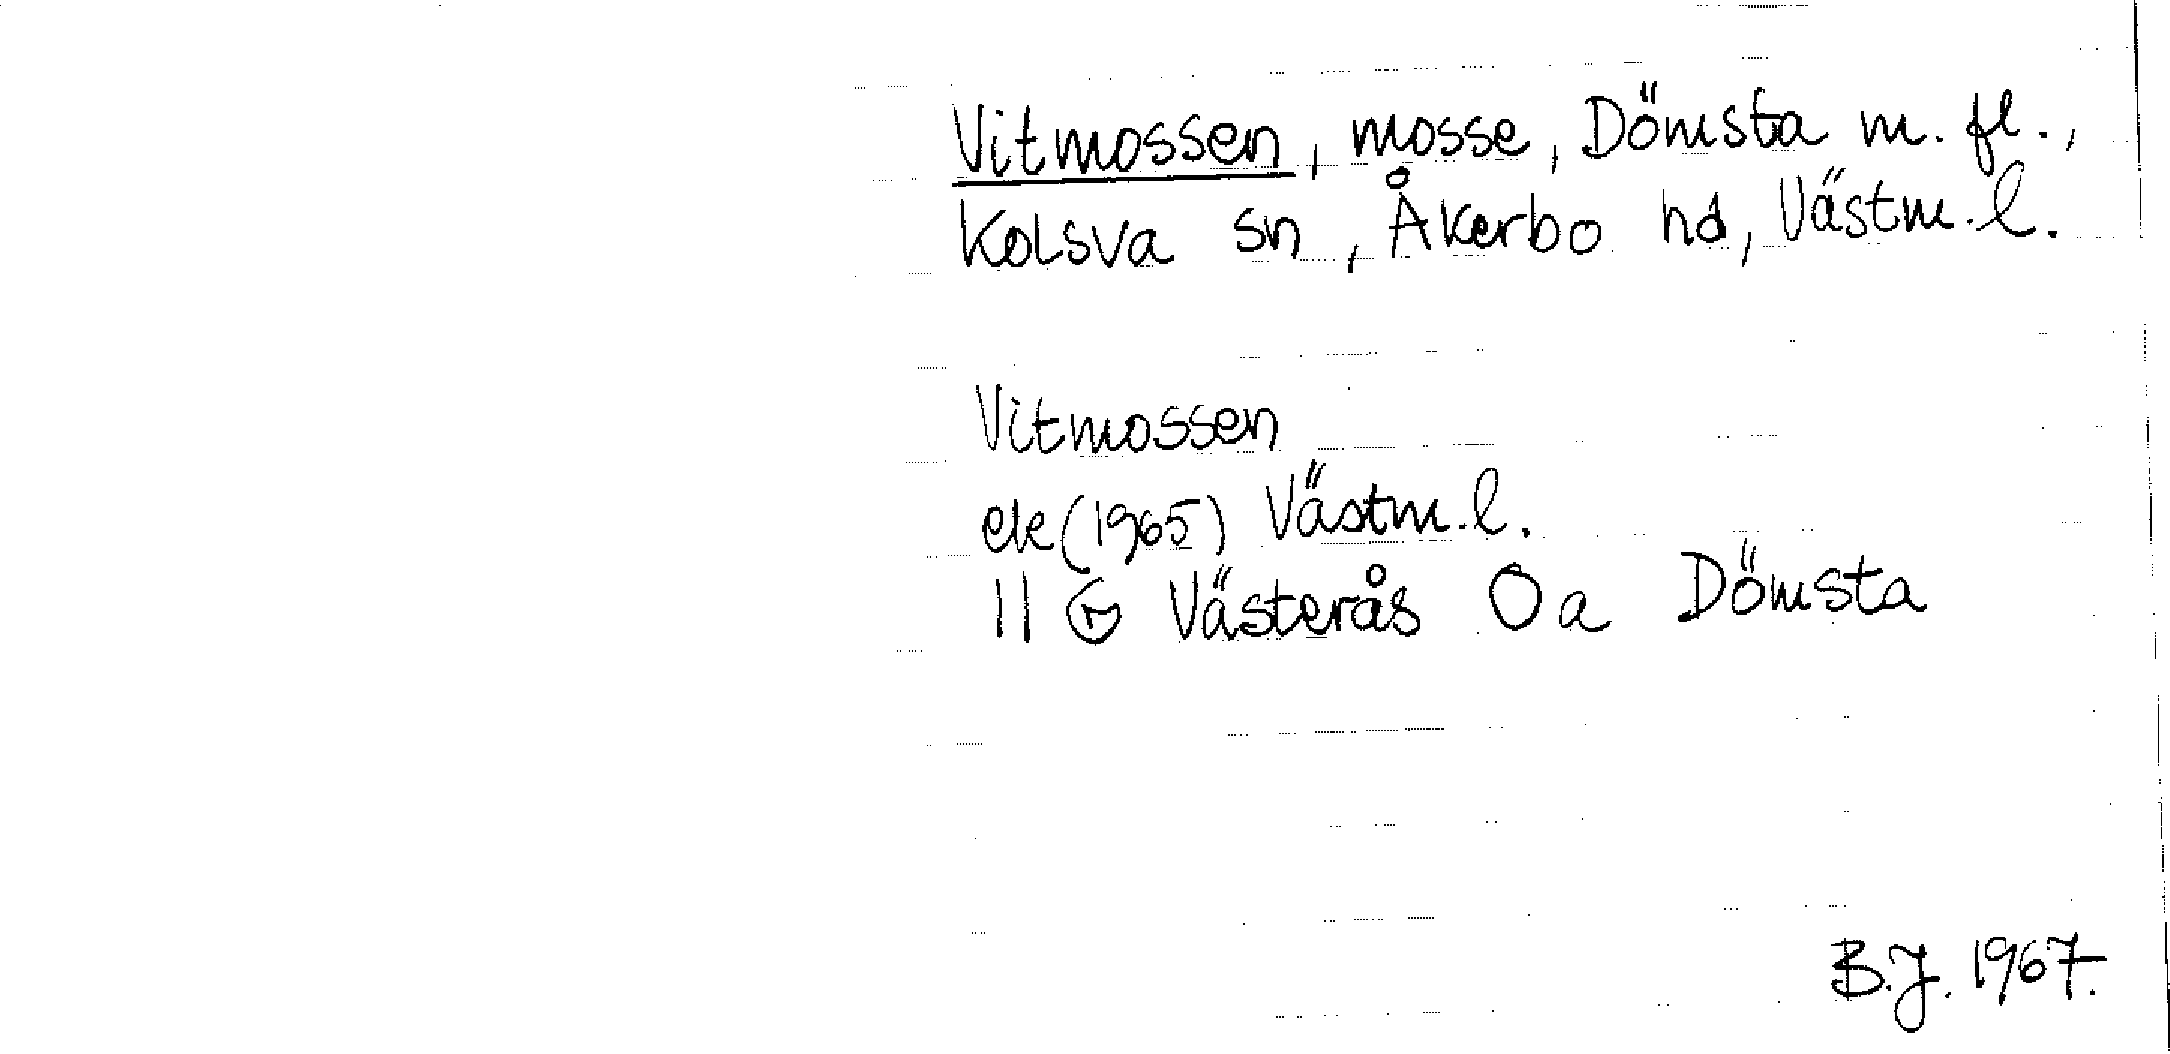 Vitmossen, mosse, Dömsta m. fl.,
Kolsva sn, Åkerbo hd, Västm. l.
Vitmossen
ek (1965) Västm. l.
11 G Västerås 0 a Dömsta
B.J. 1967.